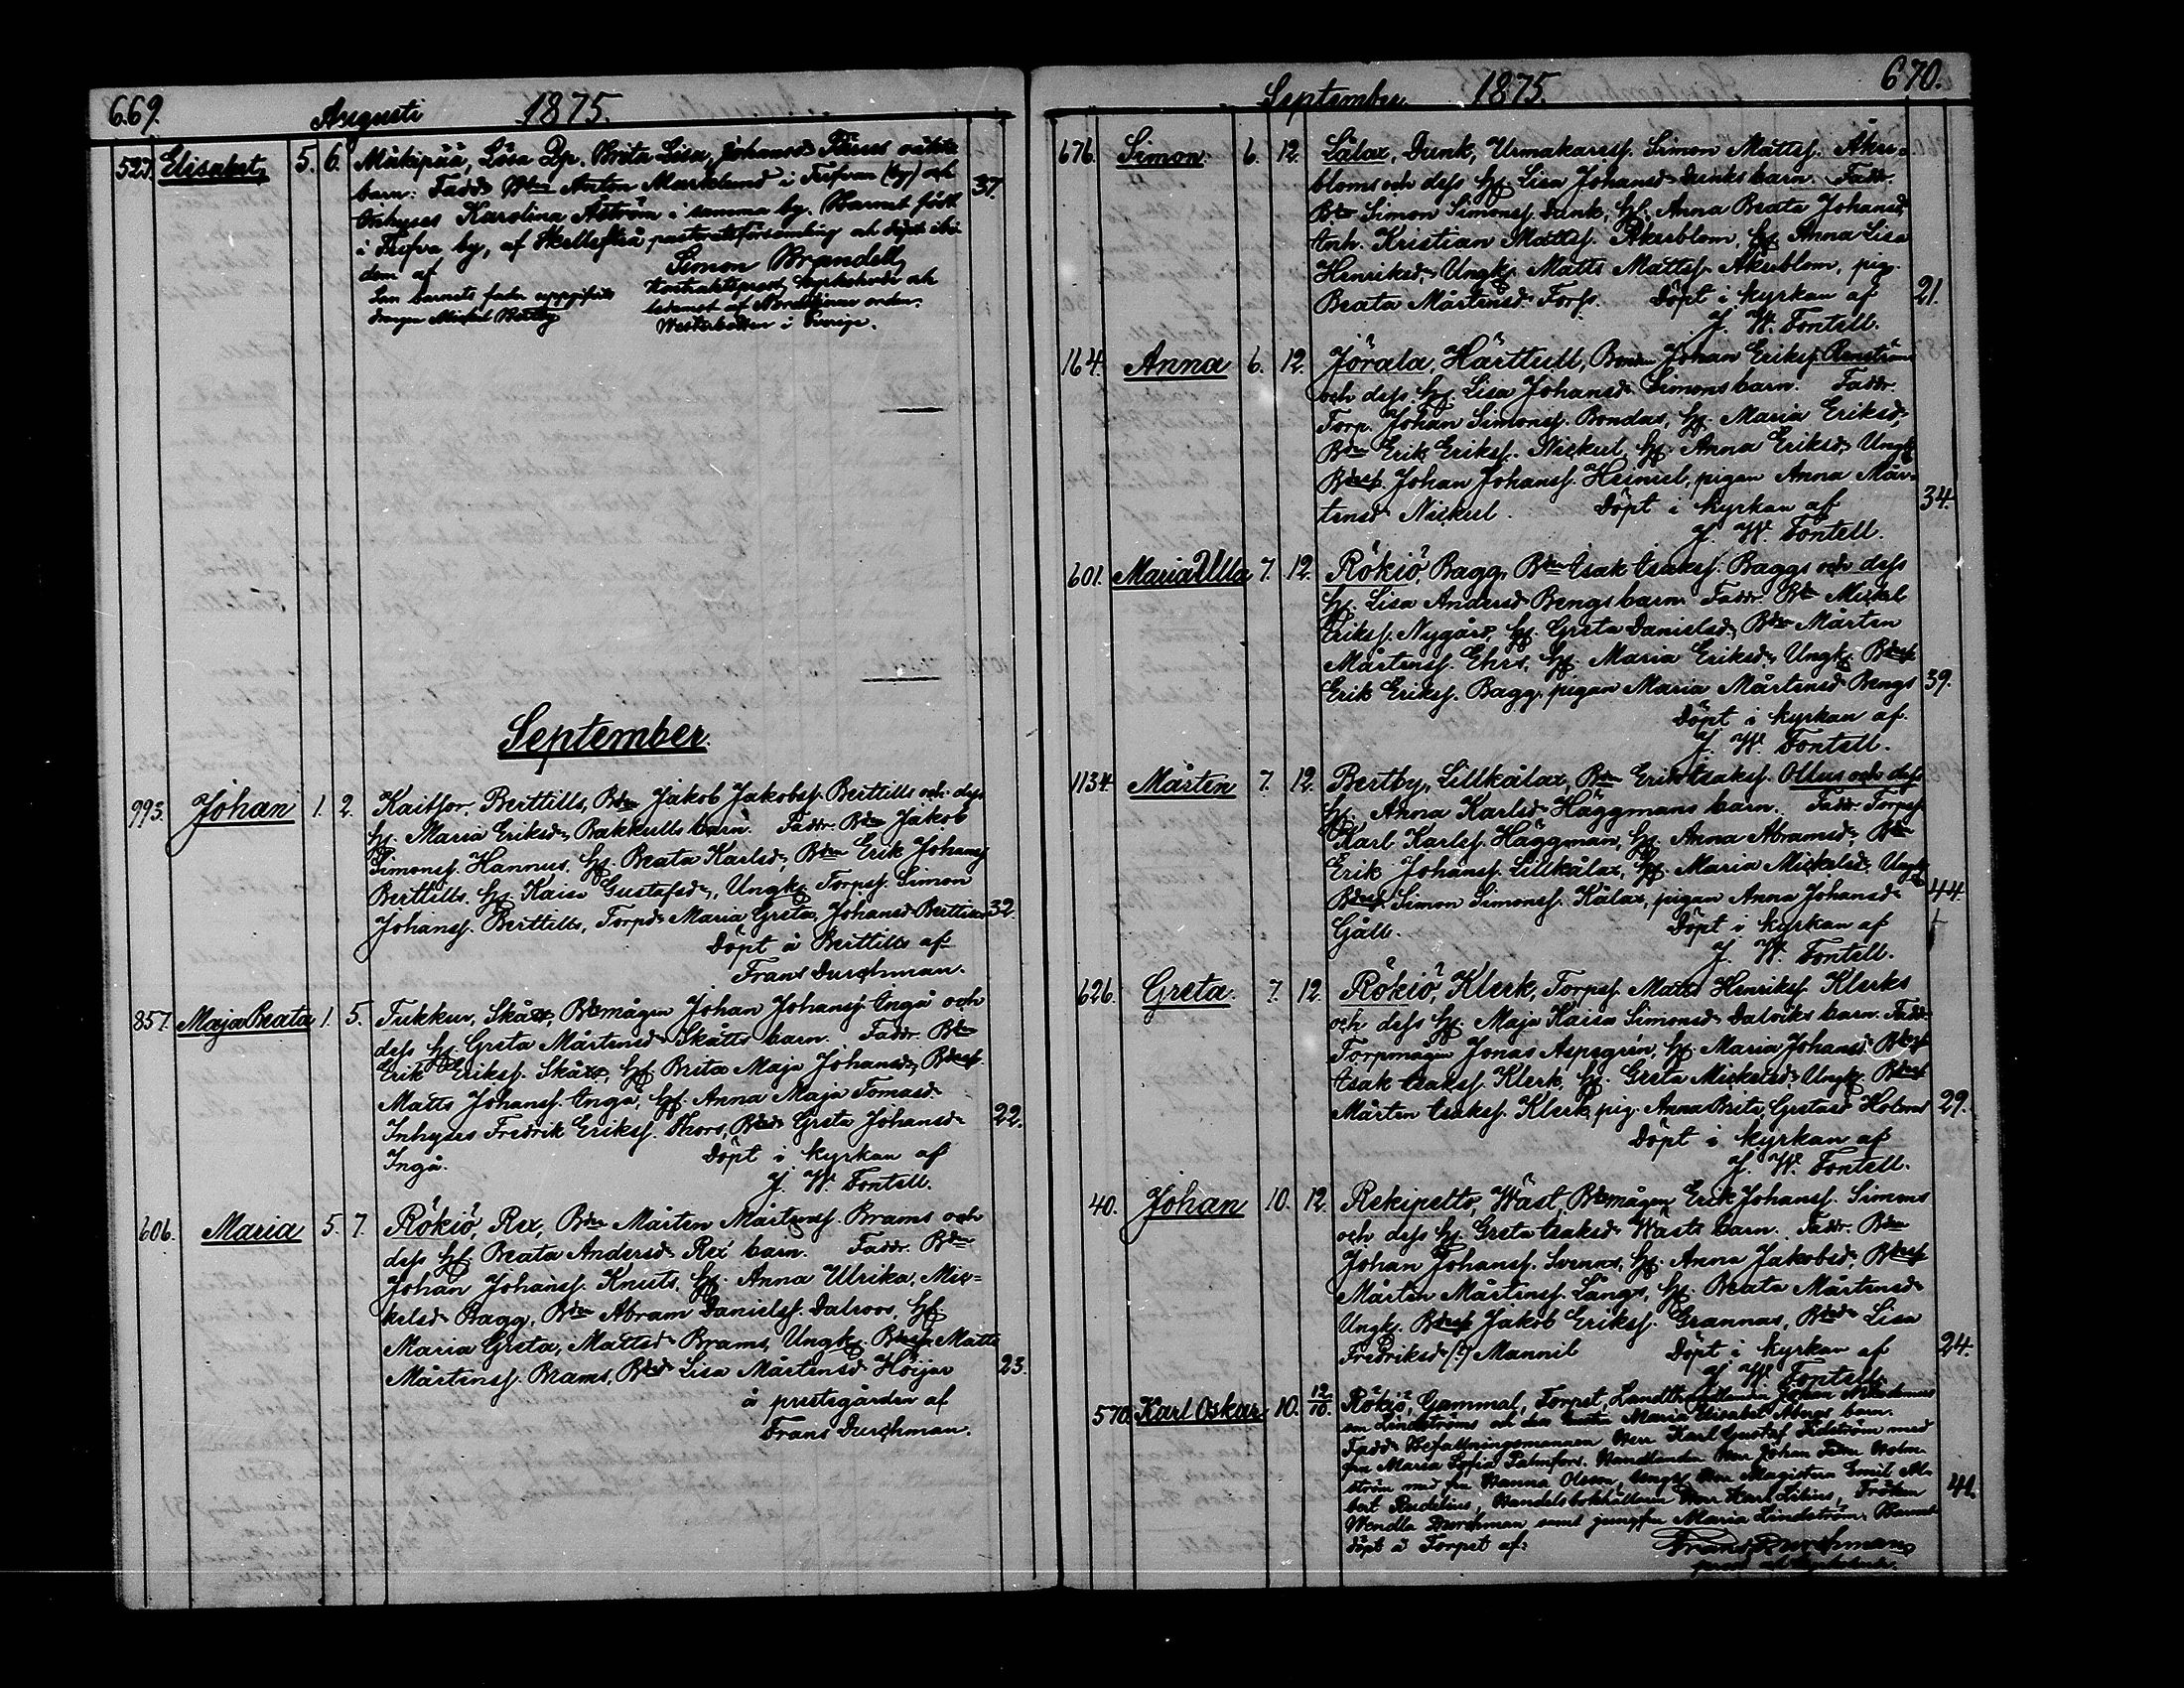 669.
Augusti 1875.
527. Elisabet, 5. 6. Mäkipää, Lösa Dp. Brita Lisa, Johansd. oäkta
barn. Fadd. Bdn Anton Marklund i Frifvan (by) och
Inhyses Karolina Åström i samma by. (Barnet född
i Frifva by, af Skellefteå pastoratsförsamling och döpt ibi-
dem af Simon Brandell, 37.
Som barnets fader uppgifvits Kontraktsprost, kyrkoherde och
drängen Mickel Bertby ledamot af Nordstjerne orden.
Westerbotten i Sverige.
September.
993. Johan 1. 2. Kaitsor, Berttills, Bdn Jakob Jakobss. Berttills och dess
Hu. Maria Eriksd. Bakkulls barn. Faddr. Bdn Jakob
Simonss. Hannus, Hu. Beata Karlsd., Bdn Erik Johanss
Berttills, Hu. Kaisa Gustafsd., Ungk. Torpss. Simon
Johanss. Berttills, Torpd. Maria Greta, Johansd. Berttills 32.
Döpt å Berttills af
Frans Durchman.
857. Maja Beata 1. 5. Tukkur, Skått, Bdemågen Johan Johanss. Ingå och
dess Hu. Greta Mårtensd. Skåtts barn. Faddr. Bdn
Erik Erikss. Skått, Hu. Brita Maja Johansd., Bdess.
Matts Johanss. Ingå, Hu. Anna Maja Tomasd.
Inhyses Fredrik Erikss. Thors, Bded. Greta Johansd. 22.
Ingå. Döpt i kyrkan af
J. W. Fontell.
606. Maria 5. 7. Rökiö, Rex, Bdn Mårten Mårtenss. Brams och
dess Hu. Beata Andersd. Rex barn. Faddr. Bdn
Johan Johanss. Knuts, Hu. Anna Ulrika, Mic-
kelsd. Bagg, Bdn Abram Danielss. Dalroos, Hu.
Maria Greta, Mattsd. Brams, Ungk. Bdess. Matts
Mårtenss. Brams, Bded. Lisa Mårtensd. Höijer 23.
å prestgården af
Frans Durchman.
670.
September 1875.
676. Simon. 6. 12. Lålax, Dunk, Urmakaress. Simon Mattss. Åker-
bloms och dess Hu. Lisa Johansd. Dunks barn. Faddr.
Bdn Simon Simonss. Dunk, Hu. Anna Beata Johansd,
Inh. Kristian Mattss. Åkerblom, Hu. Anna Lisa
Henriksd., Ungk. Matts Mattss. Åkerblom, pig.
Beata Mårtensd. Forss. Döpt i kyrkan af 21.
J. W. Fontell.
164. Anna 6. 12. Jörala, Härttull, Bonden Johan Erikss. Renström
och dess Hu. Lisa Johansd. Simons barn. Faddr.
Torp. Johan Simonss. Bondas, Hu. Maria Eriksd.,
Bdn Erik Erikss. Nickul, Hu. Anna Eriksd., Ungk
Bdess. Johan Johanss. Heiniel, pigan Anna Mår-
tensd. Nickul. Döpt i kyrkan af 34.
J. W. Fontell.
601. Maria Ulla 7. 12. Rökiö, Bagg, Bdn Isak Isakss. Baggs och dess
Hu. Lisa Andersd. Bengs barn. Faddr. Bdn Mickel
Erikss. Nygård, Hu. Greta Danielsd., Bdn Mårten
Mårtenss. Ehrs, Hu. Maria Eriksd., Ungk. Bdess
Erik Erikss. Bagg, pigan Maria Mårtensd. Bengs 39.
Döpt i kyrkan af.
J. W. Fontell.
1134. Mårten 7. 12. Bertby, Lillkålax, Bdn Erik Isakss. Ollus och dess
Hu. Anna Karlsd. Häggmans barn. Faddr. Torpss
Karl Karlss. Häggman, Hu. Anna Abramsd., Bdn
Erik Johanss. Lillkålax, Hu. Maria Mickelsd. Ungk
Bdess. Simon Simonss. Kålax, pigan Anna Johansd. 44.
Gåll. Döpt i kyrkan af
J. W. Fontell.
626. Greta. 7. 12. Rökiö, Klerk, Torpss. Matts Henrikss. Klerks
och dess Hu. Maja Kaisa Simonsd. Dalviks barn. Fadd.
Torpmågen Jonas Aspegrén, Hu. Maria Johansd. Bdess
Isak Isakss. Klerk, Hu. Greta Mickelsd. Ungk. Bdess
Mårten Isakss. Klerk, pig. Anna Brita, Gretasd. Holms 29.
Döpt i kyrkan af
J. W. Fontell.
40. Johan 10. 12. Rekipelto, Wäst, Bdemågen Erik Johanss. Simons
och dess Hu. Greta Isaksd. Wästs barn. Faddr. Bdn
Johan Johanss. Svenns, Hu. Anna Jakobsd., Bdess
Mårten Mårtenss. Långs, Hu. Beata Mårtensd.
Ungk. Bdess Jakob Erikss. Grannas, Bded. Lisa
Fredriksd. (?) Mannil Döpt i kyrkan af 24.
J. W. Fontell.
570. Karl Oskar 10. 12/10. Rökiö, Gammal, Torpet, Landthandlanden Johan Nikodemus
son Lindströms och dess hustru Maria Elisabet barn.
Fadd. Befallningsmannen Herr Karl Gustaf Sidström med
fru Maria Sofia Palmfors. Handlanden Herr Johan Holm-
ström med fru Hanna Olsson, Ungk. Herr Magistern Emil Al-
bert Rudelius, Handelsbokhållaren Herr Karl , Fröken 41.
Wendla Durchman samt jungfru Maria Lindström. Barnet
döpt å Torpet af: Frans Durchman,